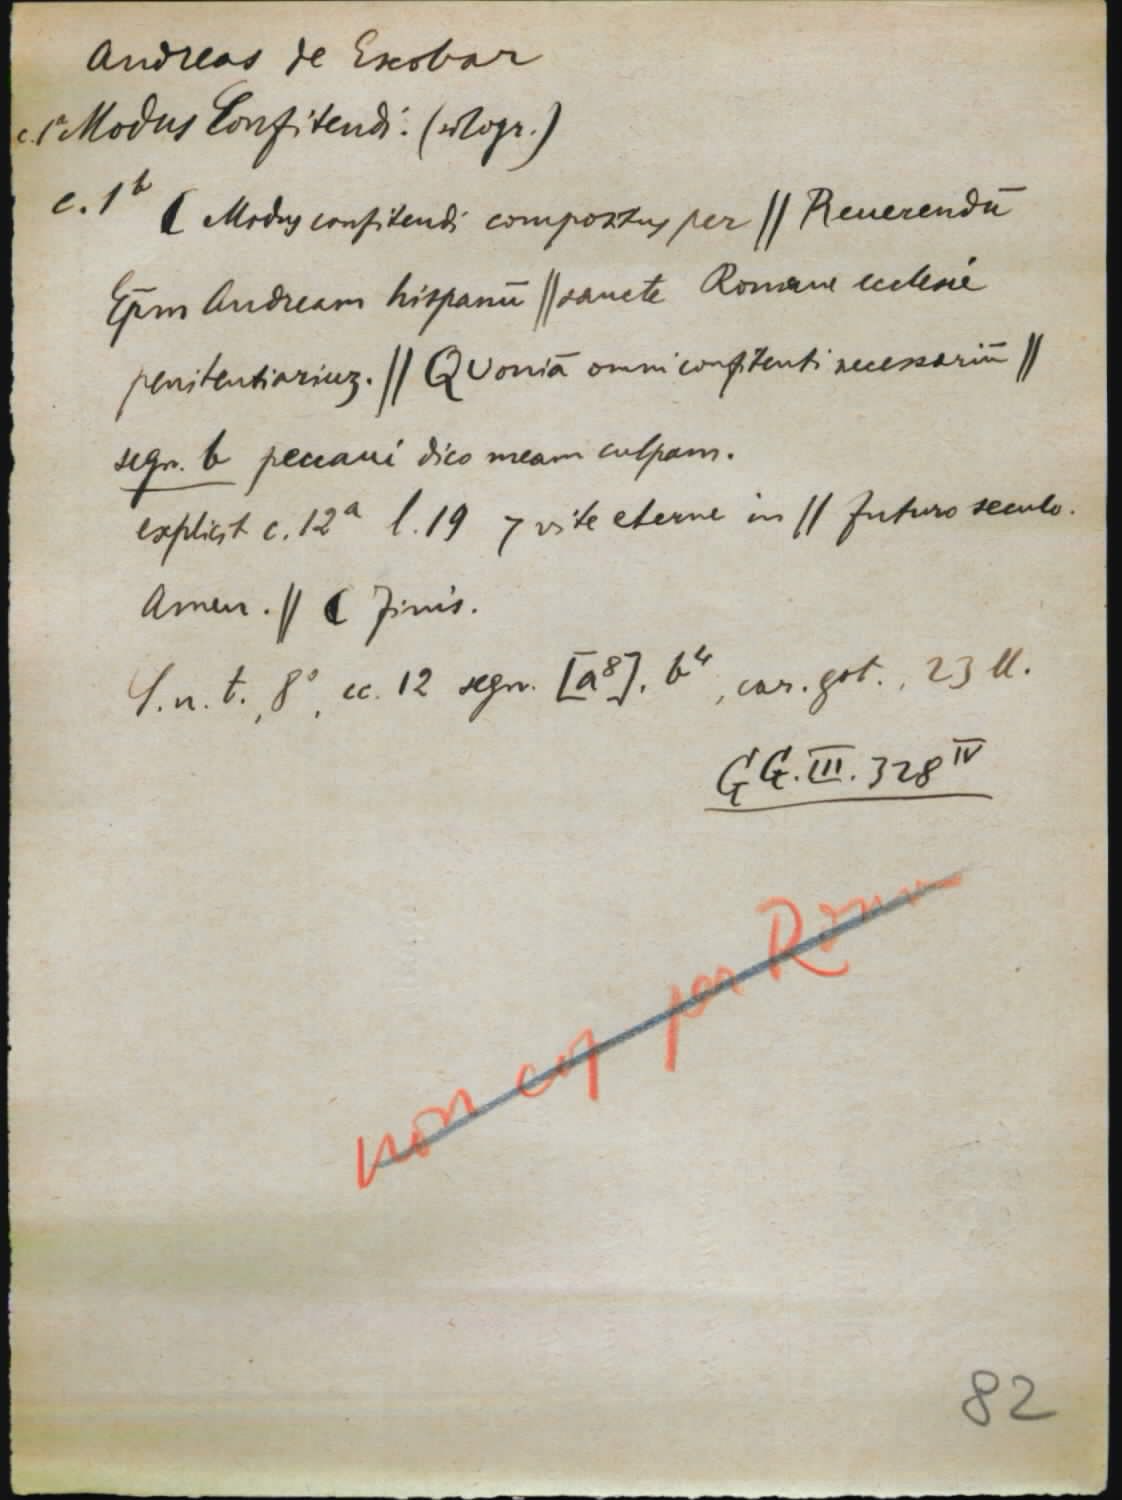 Andreas de Escobar
c. 1a Modus Confitendi. (xilogr.)
c. 1b ( Modus confitendi compositus per // Reuerendū
Ep̄m Andream hispanū // sancte Romane ecclesie
penitentiariuz. // QVoniā omni confitenti necessariū //
segn. b peccaui dico meam culpam.
explicit c. 12a l. 19 7 vite eterne in // futuro seculo.
Amen. // ( Finis.
S. n. t., 8°, cc. 12 segn. [a8]. b4, car. got., 23 ll.
GG. III. 328 IV
non cop per Roma
82